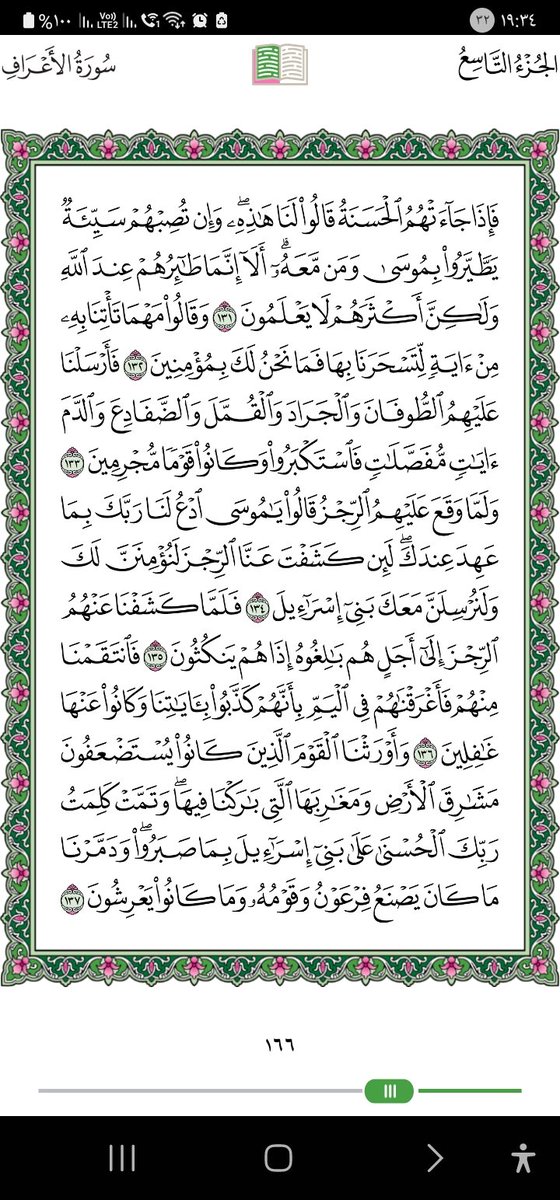 ١٩:٣٤ ٣٢ %١٠٠ Vo)) LTE2 1
الجُزْءُ التَّاسِعُ سُورَةُ الأَعْرَافِ
فَإِذَا جَآءَتْهُمُ ٱلْحَسَنَةُ قَالُوا۟ لَنَا هَٰذِهِۦۖ وَإِن تُصِبْهُمْ سَيِّئَةٌ
يَطَّيَّرُوا۟ بِمُوسَىٰ وَمَن مَّعَهُۥٓۗ أَلَآ إِنَّمَا طَٰٓئِرُهُمْ عِندَ ٱللَّهِ
وَلَٰكِنَّ أَكْثَرَهُمْ لَا يَعْلَمُونَ ١٣١ وَقَالُوا۟ مَهْمَا تَأْتِنَا بِهِۦ
مِنْ ءَايَةٍ لِّتَسْحَرَنَا بِهَا فَمَا نَحْنُ لَكَ بِمُؤْمِنِينَ ١٣٢ فَأَرْسَلْنَا
عَلَيْهِمُ ٱلطُّوفَانَ وَٱلْجَرَادَ وَٱلْقُمَّلَ وَٱلضَّفَادِعَ وَٱلدَّمَ
ءَايَٰتٍ مُّفَصَّلَٰتٍ فَٱسْتَكْبَرُوا۟ وَكَانُوا۟ قَوْمًا مُّجْرِمِينَ ١٣٣
وَلَمَّا وَقَعَ عَلَيْهِمُ ٱلرِّجْزُ قَالُوا۟ يَٰمُوسَى ٱدْعُ لَنَا رَبَّكَ بِمَا
عَهِدَ عِندَكَۖ لَئِن كَشَفْتَ عَنَّا ٱلرِّجْزَ لَنُؤْمِنَنَّ لَكَ
وَلَنُرْسِلَنَّ مَعَكَ بَنِىٓ إِسْرَٰٓءِيلَ ١٣٤ فَلَمَّا كَشَفْنَا عَنْهُمُ
ٱلرِّجْزَ إِلَىٰٓ أَجَلٍ هُم بَٰلِغُوهُ إِذَا هُمْ يَنكُثُونَ ١٣٥ فَٱنتَقَمْنَا
مِنْهُمْ فَأَغْرَقْنَٰهُمْ فِى ٱلْيَمِّ بِأَنَّهُمْ كَذَّبُوا۟ بِـَٔايَٰتِنَا وَكَانُوا۟ عَنْهَا
غَٰفِلِينَ ١٣٦ وَأَوْرَثْنَا ٱلْقَوْمَ ٱلَّذِينَ كَانُوا۟ يُسْتَضْعَفُونَ
مَشَٰرِقَ ٱلْأَرْضِ وَمَغَٰرِبَهَا ٱلَّتِى بَٰرَكْنَا فِيهَاۖ وَتَمَّتْ كَلِمَتُ
رَبِّكَ ٱلْحُسْنَىٰ عَلَىٰ بَنِىٓ إِسْرَٰٓءِيلَ بِمَا صَبَرُوا۟ۖ وَدَمَّرْنَا
مَا كَانَ يَصْنَعُ فِرْعَوْنُ وَقَوْمُهُۥ وَمَا كَانُوا۟ يَعْرِشُونَ ١٣٧
١٦٦